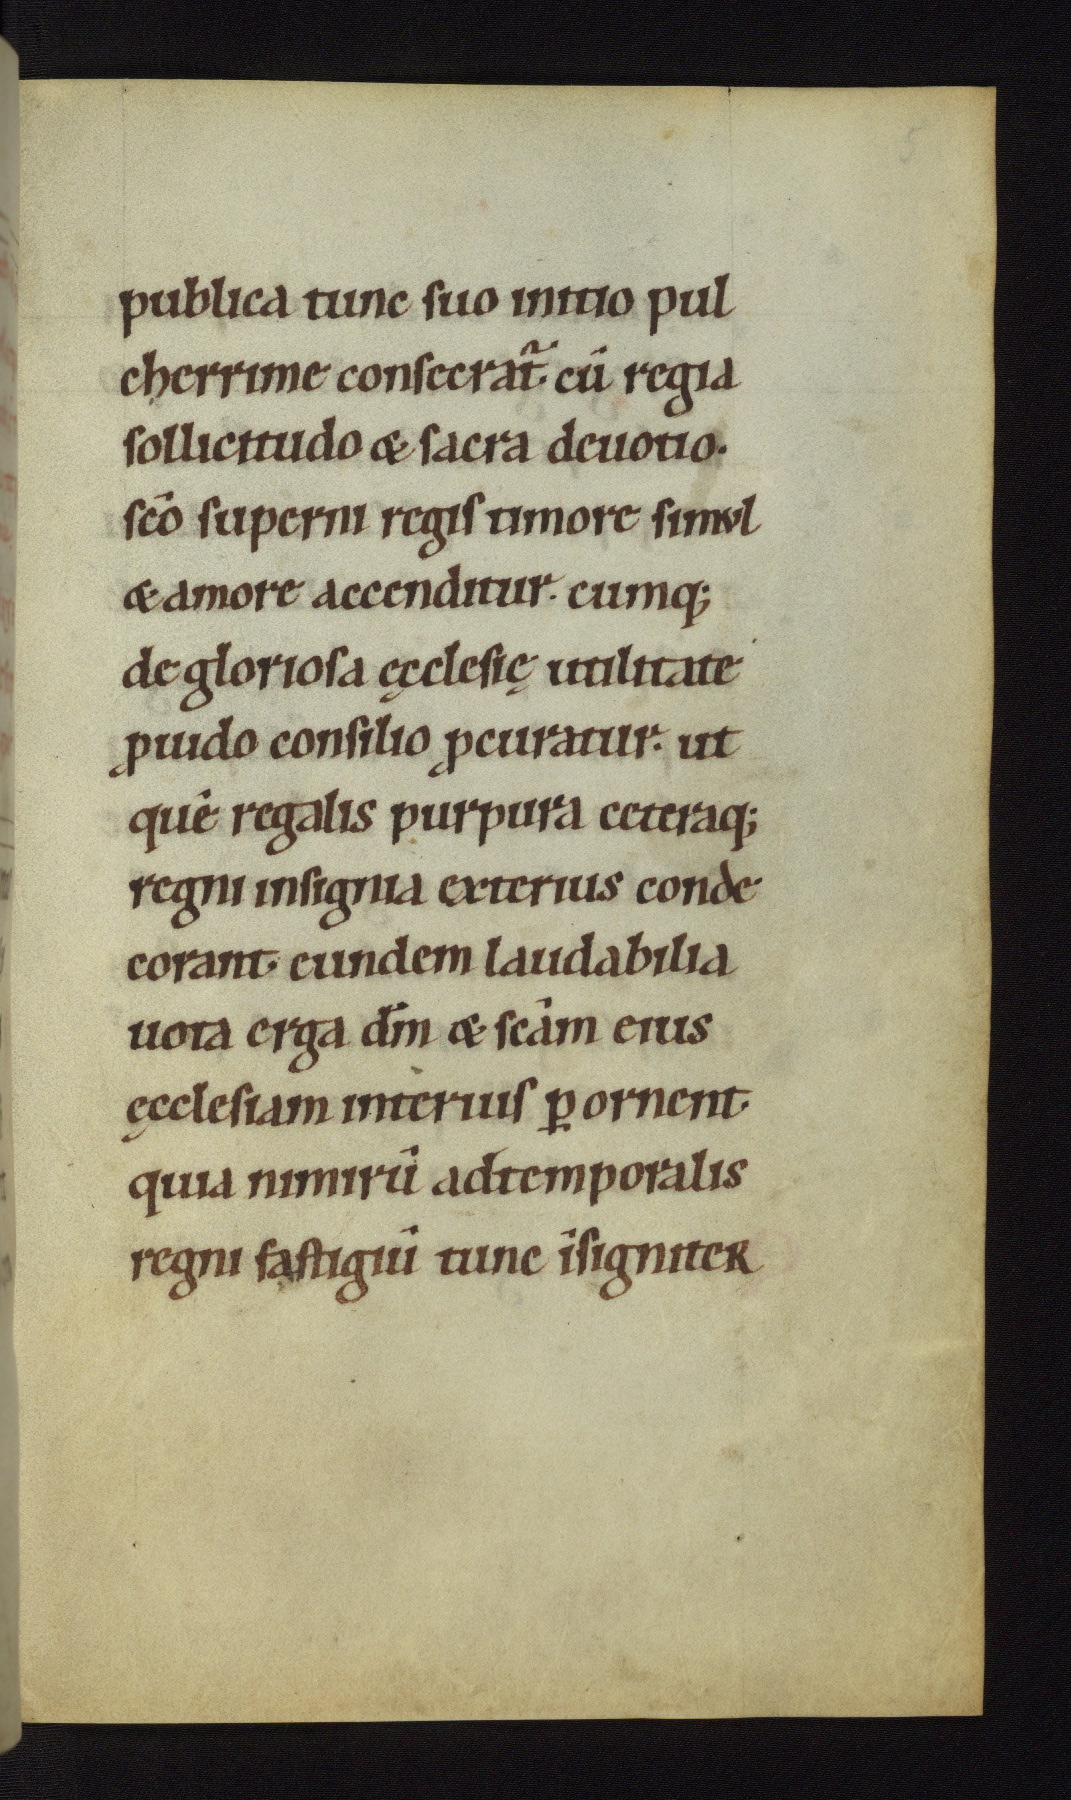 5
publica tunc suo initio pul
cherrime consecrat᷑. cū regia
sollicitudo & sacra deuotio.
sc̄o superni regis timore simul
& amore accenditur. cumq;
de gloriosa ęcclesię utilitate
ꝓuido consilio ꝓcuratur. ut
quē regalis purpura ceteraq;
regni insignia exterius conde
corant. eundem laudabilia
uota erga dm̄ & sc̄am eius
ęcclesiam interius ꝑornent.
quia nimirū ad temporalis
regni fastigiū tunc īsigniter